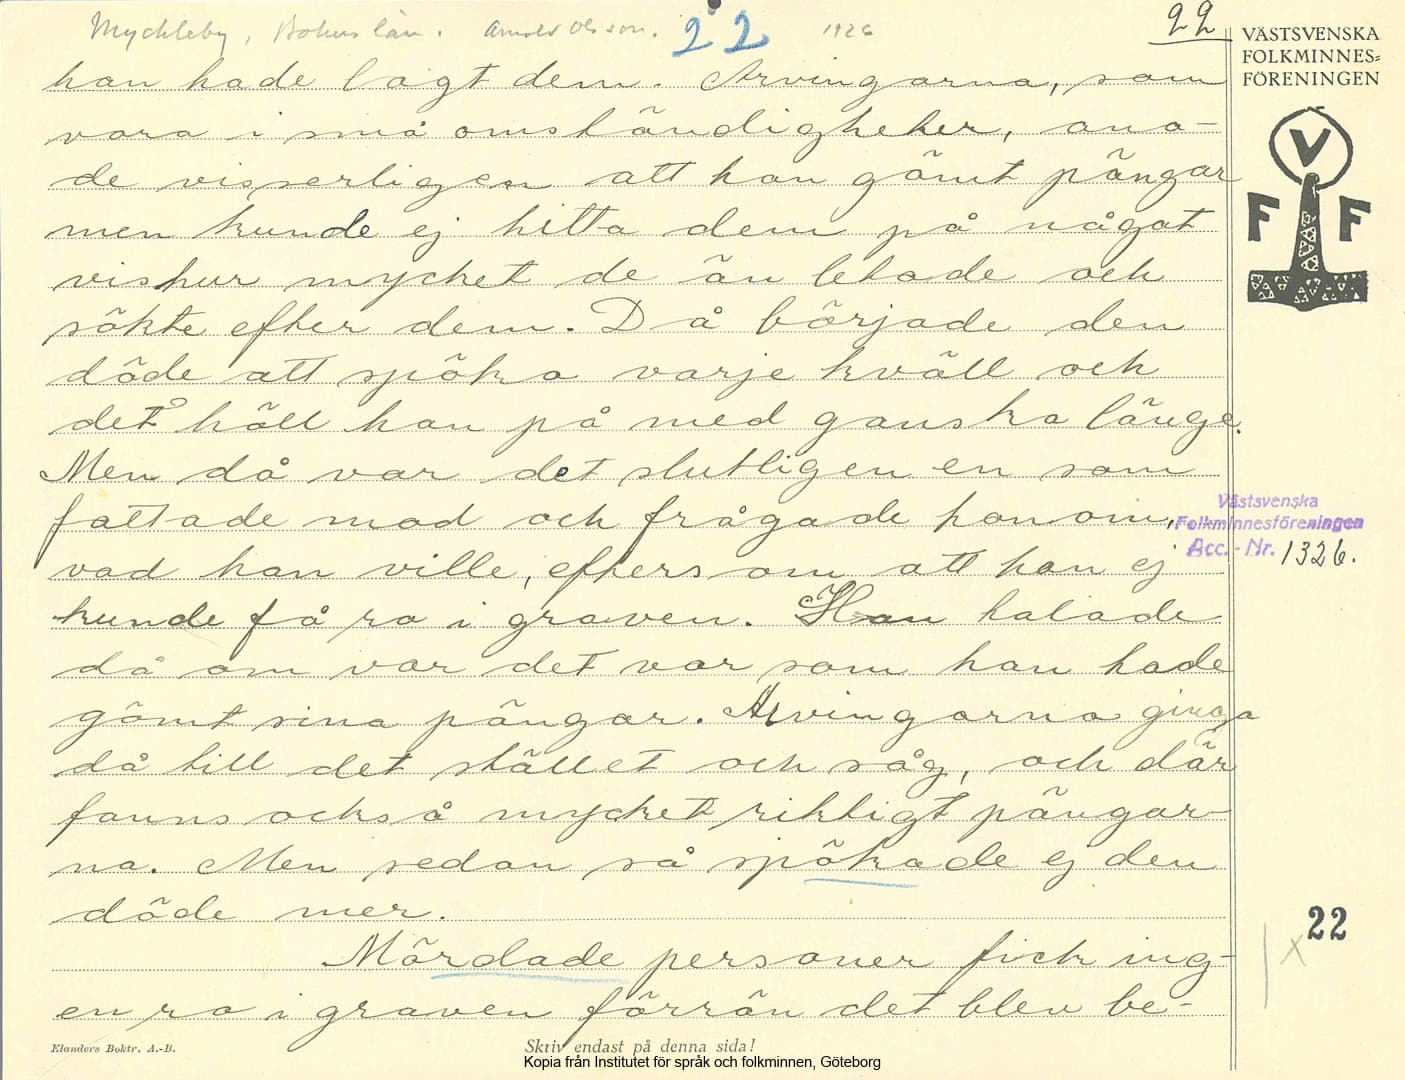 Myckleby, Bohuslän. Arnold Olsson. 22 1926 22
VÄSTSVENSKA
FOLKMINNES=
FÖRENINGEN
V
F F
han hade lagt dem. Arvingarna, som
vara i små omständigheter, ana-
de visserligen att han gömt pängar
men kunde ej hitta dem på något
vis hur mycket de än letade och
sökte efter dem. Då började den
döde att spöka varje kväll och
det höll han på med ganska länge.
Men då var det slutligen en som
fattade mod och frågade honom,
vad han ville, eftersom att han ej
kunde få ro i graven. Han talade
då om var det var som han hade
gömt sina pängar. Arvingarna ginga
då till det stället och såg, och där
fanns också mycket riktigt pängar-
na. Men sedan så spökade ej den
döde mer.
Mördade personer fick ing-
en ro i graven förrän det blev be-
Västsvenska
Folkminnesföreningen
Acc. - Nr. 1326.
x 22
Elanders Boktr. A.-B.
Skriv endast på denna sida!
Kopia från Institutet för språk och folkminnen, Göteborg